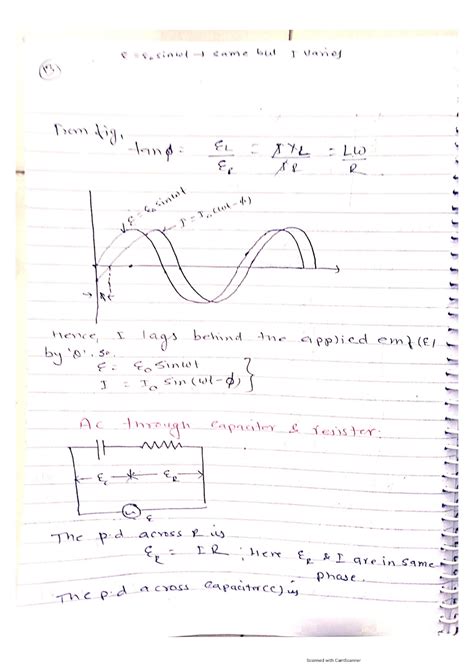 E = E₀ sinωt → same but I varies
From fig,
tanϕ = ε_L/ε_R = IX_L/IR = Lω/R
ε = ε₀ sinωt
I = I₀(ωt-ϕ)
Hence, I lags behind the applied emf (ε)
by 'ϕ'. So.
ε = ε₀ sinωt
I = I₀ sin(ωt-ϕ)
Ac through capacitor & resistor:
ε_C ε_R
ε
The p.d across R is
ε_R = IR, Here ε_R & I are in same
phase.
The p.d across capacitor(c) is
Scanned with CamScanner